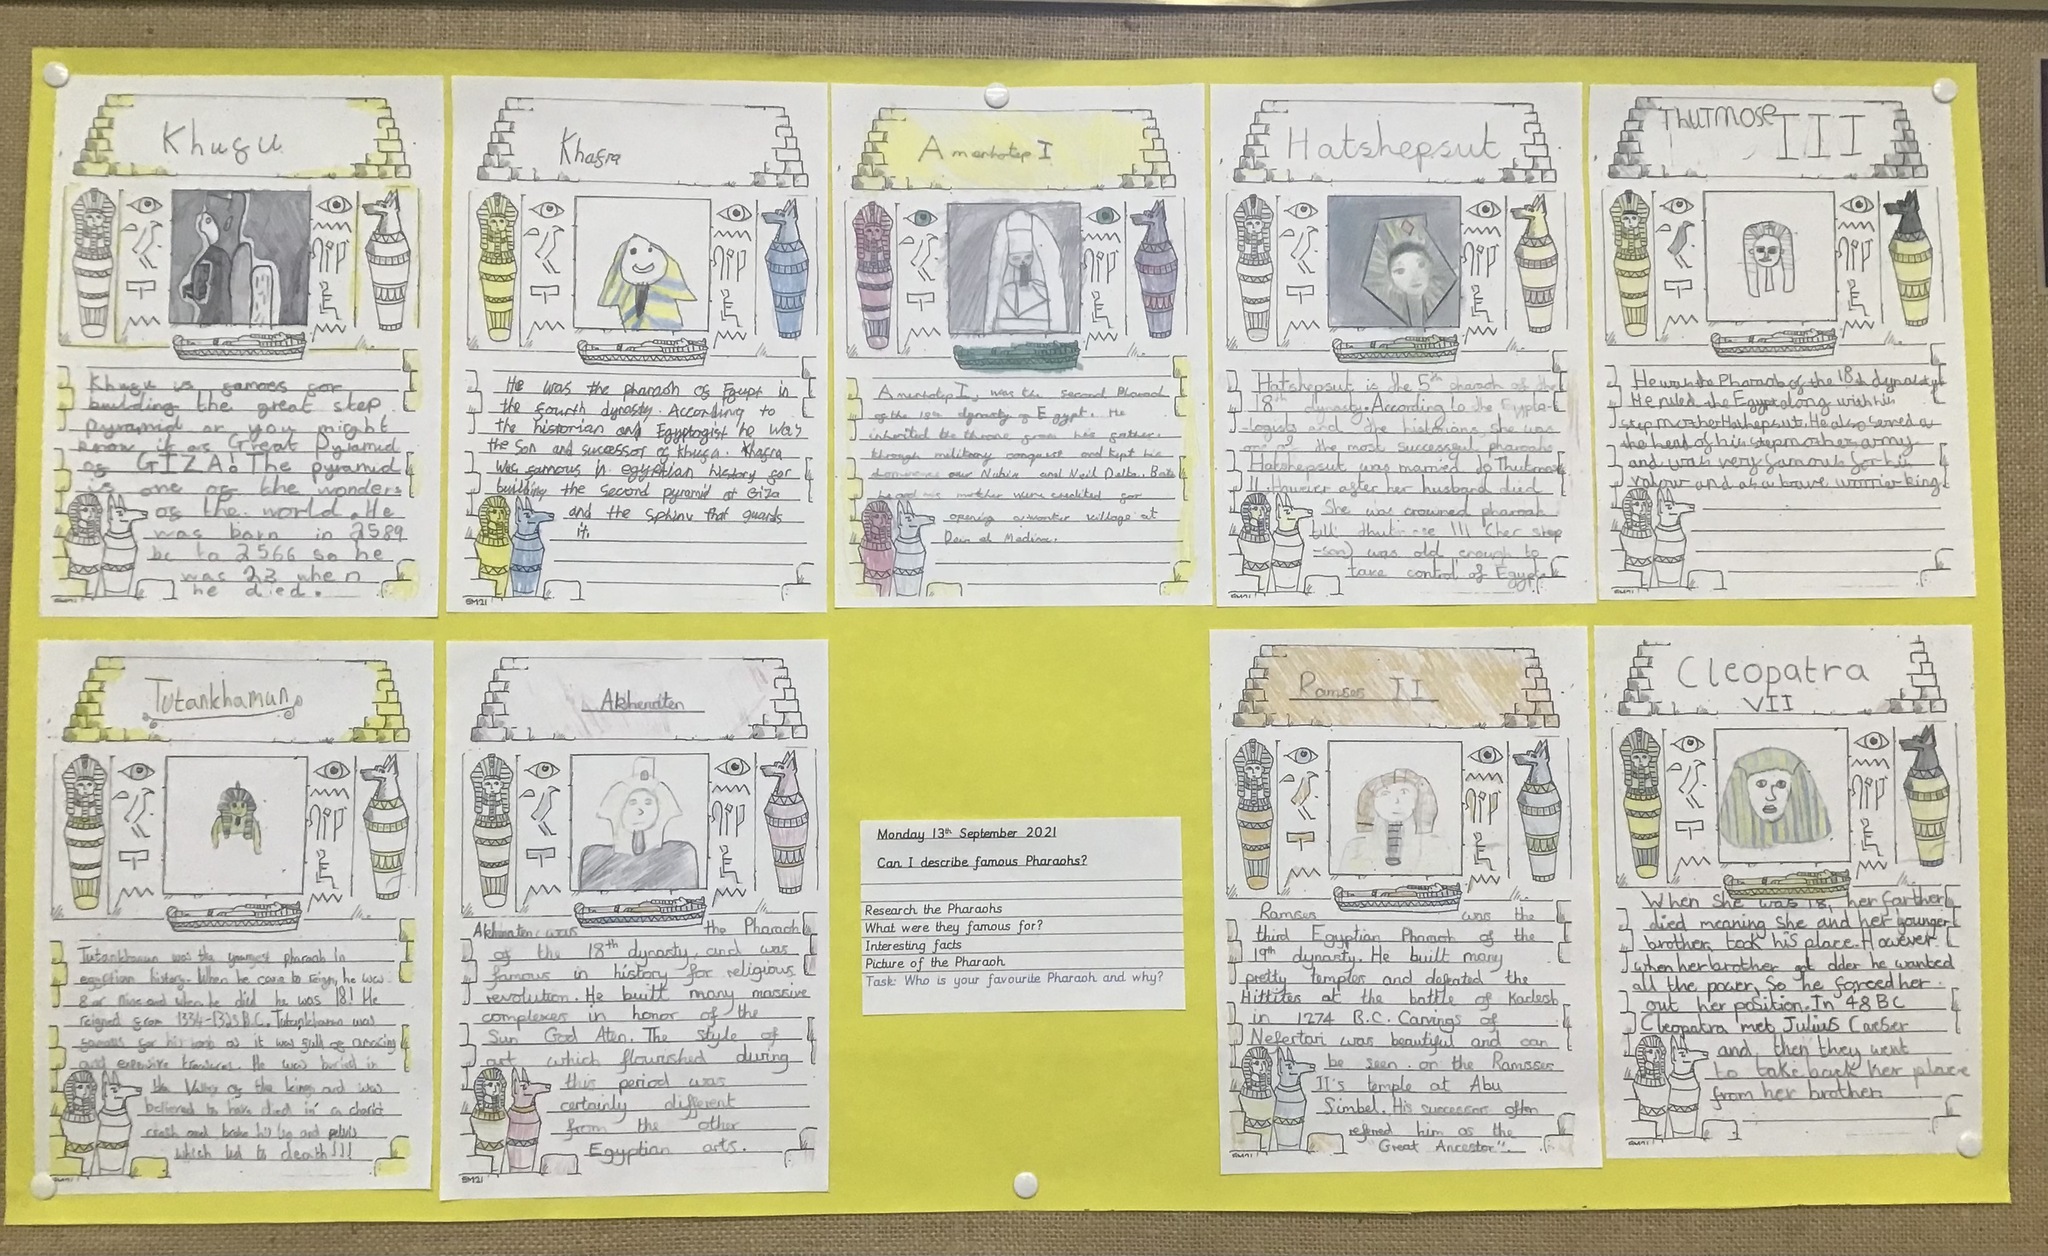 Khufu
Khufu is famoes for
building the great step
pyramid or you might
know it as Great Pyramid
of GIZA! The pyramid
is one of the wonders
of the world. He
was born in 2589
bc to 2566 so he
was 23 when
he died.
Khafra
He was the pharaoh of Egypt in
the fourth dynasty. According to
the historian and Egyptogist he was
the son and successor of Khufu. Khafra
was famous in egyptian history for
building the second pyramid at Giza
and the sphinx that guards
it.
SM21
Amenhotep I
Amenhotep I, was the second Pharaoh
of the 18th dynasty of Egypt. He
inherited the throne from his father.
through military conquest and kept his
and Neil Delta. Both
he and his mother were credited for
opening a worker village at
Deir el Medina.
Hatshepsut
Hatshepsut is the 5th pharaoh of the
18th dynasty. According to the Egypta-
-logists and the historians, she was
one of the most successful pharaohs
Hatshepsut was married to Thutmose
II. However after her husband died
She was crowned pharaoh
till thutmose III (her step
-son) was old enough to
take control of Egypt.
Thutmose III
He was the Pharaoh of the 18th dynasty
He ruled the Egypt along with his
step mother Hatshepsut. He also served as
the head of his stepmothers army
and was very famous for his
valour and as a brave worrier king.
Tutankhamun
Tutankhamun was the youngest pharaoh in
egyptian history. When he came to reign, he was
8 or nine and when he died he was 18! He
reigned from 1334-1325 B.C. Tutankhamun was
famous for his tomb as it was full of amazing
and expensive treasures. He was buried in
the Valley of the kings and was
believed to have died in a chariot
crash and broke his leg and pelvis
which led to death!!!
Akhenaten
Akhenaten was the Pharaoh
of the 18th dynasty and was
famous in history for religious
revolution. He built many massive
complexes in honor of the
Sun God Aten. The style of
art which flourished during
this period was
certainly different
from the other
Egyptian arts.
SM21
Monday 13th September 2021
Can I describe famous Pharaohs?
Research the Pharaohs
What were they famous for?
Interesting facts
Picture of the Pharaoh
Task: Who is your favourite Pharaoh and why?
Ramses II
Ramses was the
third Egyptian Pharaoh of the
19th dynasty. He built many
pretty temples and defeated the
Hittites at the battle of Kadesh
in 1274 B.C. Carvings of
Nefertari was beautiful and can
be seen on the Ramses
II's temple at Abu
Simbel. His successor often
refered him as the
"Great Ancestor".
Cleopatra
VII
When she was 18, her farther
died meaning she and her younger
brother took his place. However
when her brother got older he wanted
all the power, So he forced her
out her position. In 48 BC
Cleopatra met Julius Caeser
and, then they went
to take back her place
from her brother.